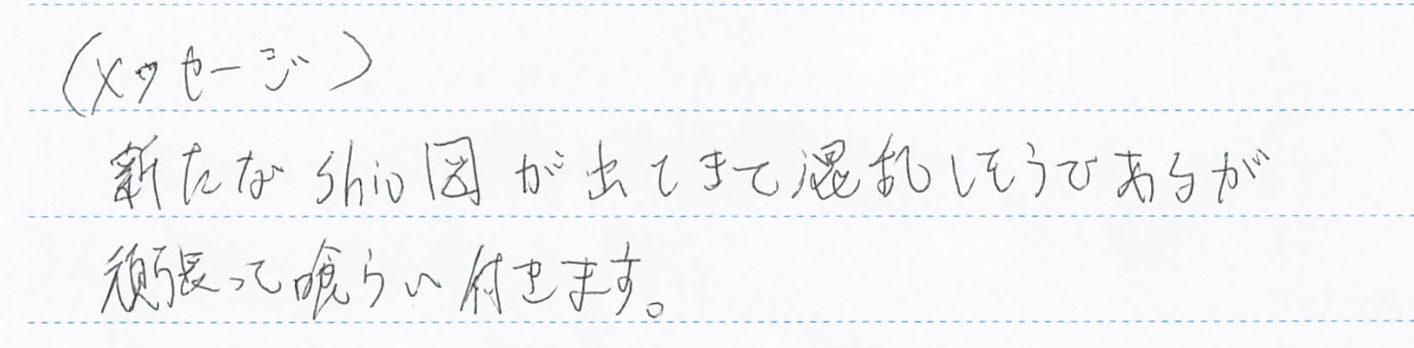 (メッセージ)
新たなshio図が出てきて混乱しそうであるが
頑張って喰らい付きます。